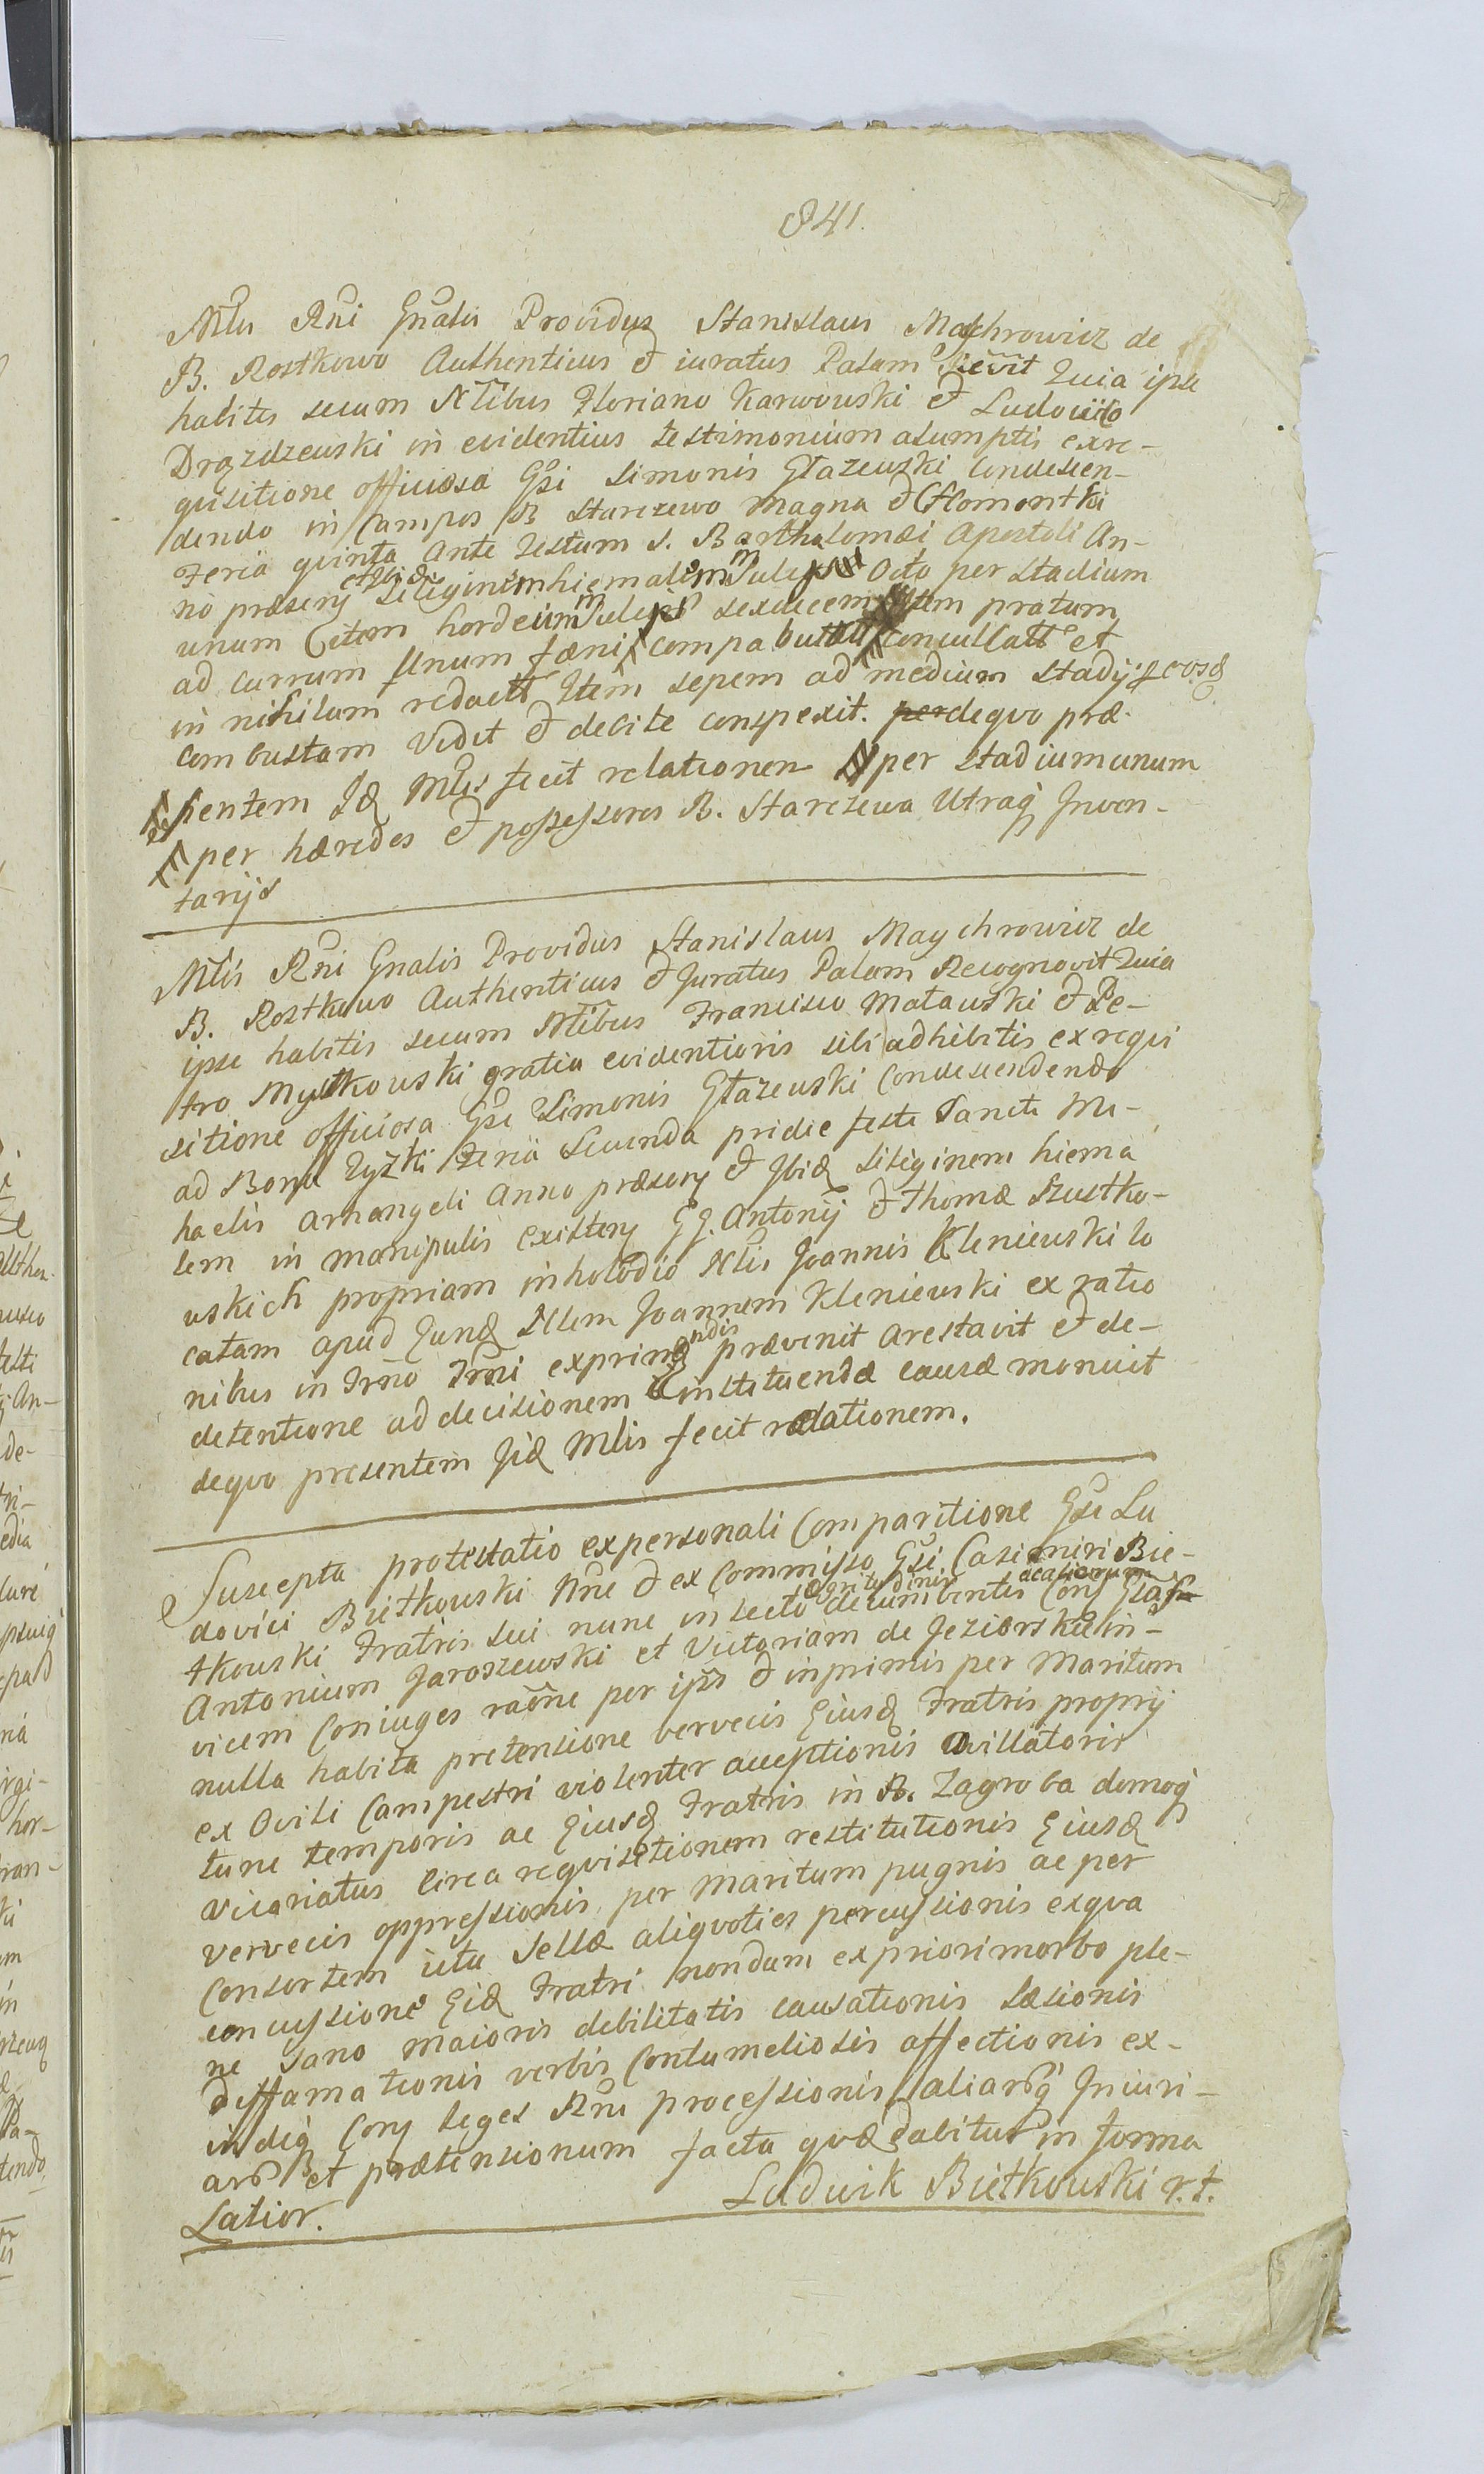 841.
Mtis Rni Gnalis Providus Stanislaus Maychrowicz de
B. Rostkowo Authenticus et iuratus Palam Quia ipse
habitis secum Ntibus Floriano Karwowski et Ludovico
Drązdzewski in evidentius testimonium asumptis exre-
quisitione officiosa Gsi Simonis Głazewski Condescen-
dendo in Campos B Starczewo Magna et
Feria quinta Ante Festum S. Bartholomæi Apostoli An-
no præsenj et ibid Siliginem hiemalem Octo per stadium
unum item hordeum sexdecem Item pratum
ad currum Unum fæni compa conculcatt et
in nihilum redactt Item sepem ad medium stadij
combustam Vidit et debite conspexit. dequo præ-
sentem Id Mtis fecit relationem per stadium unum
per hæredes et possessores B. Starczewa Utraq Inven-
tarijs
Mtis Rni Gnalis Providus Stanislaus Maychrowicz de
B. Rostkowo Authenticus et Juratus Palam Recognovit Quia
ipse habitis secum Ntibus Francisco Matawski et Pe-
tro Mystkowski gratia evidentioris sibi adhibitis exrequi
sitione officiosa Gsi Simonis Głazewski Condescendendo
ad Bona Zyzki Feria Secunda pridie festi Sancti Mi-
haelis Arhangeli Anno præsenj et Ibid Siliginem hiema
lem in manipulis existenj GG. Antonij et Thomæ Szustko-
wskich propriam inholodio Ntis Joannis Kleniewski lo
catam apud Eund Ntem Joannem Kleniewski ex ratio
nibus in Trno Trni exprimendis prævenit arestavit et de-
detentione ad decisionem instituendæ causæ monuit
dequo presentem Jid Mtis fecit relationem.
Suscepta protestatio expersonali Comparitione Gsi Lu
dovici Bietkowski Nne et ex Commisso Gsi Casimiri Bie-
tkowski Fratris sui nunc in lecto ægritudinis decumbentis Conj
Antonium Jaroszewski et Victoriam de Jeziorskie in-
vicem Coniuges raone per ipos et inprimis per Maritum
nulla habita pretensione vervecis Eiusd Fratris proprij
ex Ovili Campestri violenter acceptionis
tunc temporis ac Eiusd Fratris in B. Zagroba domoq
Vicariatus circa requisitionem restitutionis Eiusd
vervecis oppressionis per Maritum pugnis ac per
Consortem ictu Sellæ aliquoties percussionis exqua
concussione Eid Fratri nondum expriori morbo ple-
ne sano maioris debilitatis causationis læsionis
diffamationis verbis Contumeliosis affectionis ex-
indeq Conj leges Rni processionis aliarūq Iniuri-
arū et prætensionum facta quæ dabitur in forma
Latior. Ludwik Bietkowski r.t.